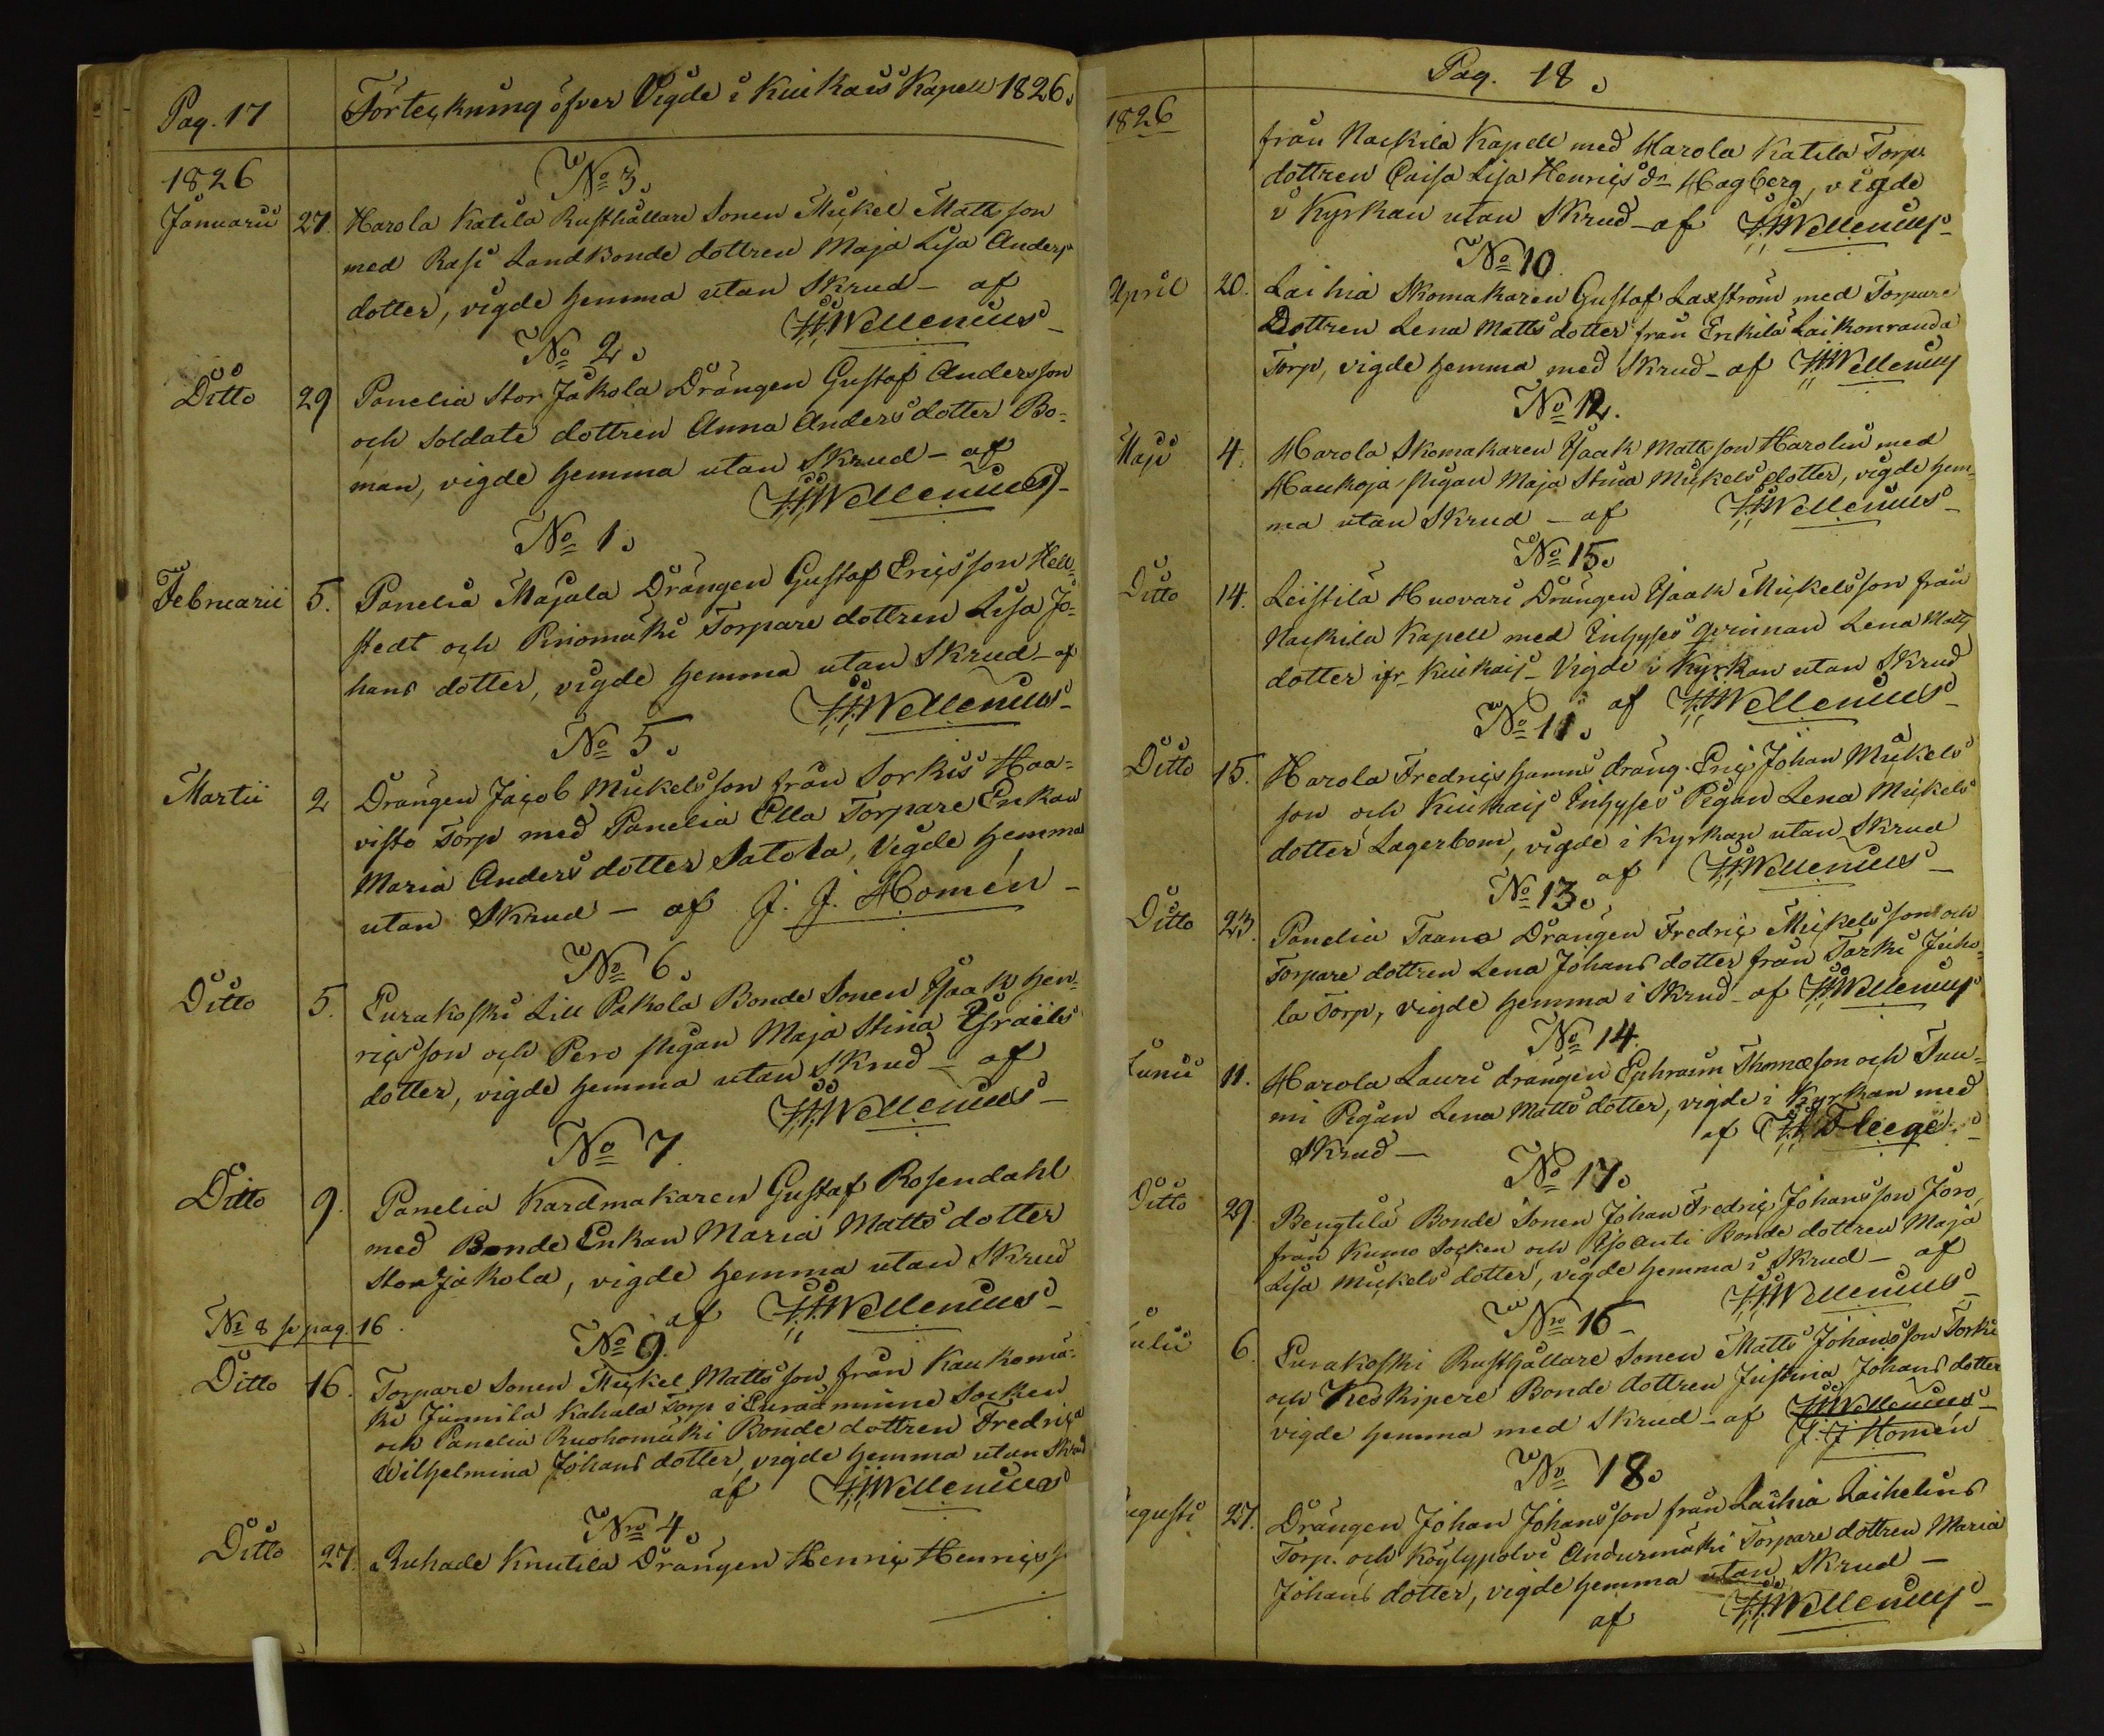 Pag. 17 Förteckning öfver Vigde i Kiukais Kapell 1826.
1826 No 3.
Januarii 27. Harola Katila Rusthållare Sonen Mickel Mattsson
med Rasi Landbonde dottren Maja Lisa Anders
dotter, vigde hemma utan Skrud - af
HHWellenius
No 2.
Ditto 29 Panelia Stor Jakola Drängen Gustaf Andersson
och Soldate dottren Anna Anders dotter Bo=
man, vigde hemma utan Skrud - af
HHWellenius
No 1.
Februarii 5. Panelia Majala Drängen Gustaf Ericsson Hell=
stedt och Pinomäki Torpare dottren Lisa Jo=
hans dotter, vigde hemma utan Skrud - af
HHWellenius
No 5.
Martii 2 Drängen Jacob Mickelsson från Sorkis Haa=
visto Torp med Panelia Ella Torpare Enkan
Maria Anders dotter Satola, Vigde hemma
utan Skrud - af J. J. Homén
No 6.
Ditto 5. Eurakoski Lill Pakola Bonde Sonen Isaak Hen=
ricsson och Pero pigan Maja Stina Israels
dotter, vigde hemma utan Skrud - af
HHWellenius
No 7.
Ditto 9. Panelia Kardmakaren Gustaf Rosendahl
med Bonde Enkan Maria Matts dotter
Stor Jakola, vigde hemma utan Skrud
af HHWellenius
No 8 se pag. 16.
No 9.
Ditto 16. Torpare Sonen Mickel Mattsson från Kaukomä=
ki Jünnila Kahala Torp i Euraåminne Socken
och Panelia Ruohomäki Bonde dottren Fredrica
Wilhelmina Johans dotter, vigde hemma utan Skrud
af HHWellenius
No 4.
Ditto 27. Ruhade Knutila Drängen Henric Henricss
Pag. 18.
1826
från Nackila Kapell med Harola Katila Torp
dottren Caisa Lisa Henrics dr Hagberg, vigde
i Kyrkan utan Skrud - af HHWellenius
No 10.
April 20. Laihia Skomakaren Gustaf Laxström med Torpare
Dottren Lena Matts dotter från Erkilä Laikonranda
Torp, vigde hemma med Skrud - af HHWellenius
No 12.
Maji 4. Harola Skomakaren Isaak Mattsson Harolin med
Haukoja pigan Maja Stina Mickels dotter, vigde hem=
ma utan Skrud - af HHWellenius
No 15.
Ditto 14. Leistilä Huovari Drängen Isaak Mickelsson från
Nackila Kapell med Inhyses qvinnan Lena Matts
dotter ifr Kiukais - Vigde i Kyrkan utan Skrud
af HHWellenius
No 11.
Ditto 15. Harola Fredricshamns dräng. Eric Johan Mickels
son och Kiukais Inhyses Pigan Lena Mickels
dotter Lagerbom, vigde i Kyrkan utan Skrud
af HHWellenius
No 13.
Ditto 23. Panelia Taano Drängen Fredric Mickelsson och
Torpare dottren Lena Johans dotter från Tarki Juho=
la Torp, vigde hemma i Skrud - af HHWellenius
No 14.
Junii 11. Harola Lauri drängen Ephraim Thomæson och Tuu=
mi Pigan Lena Matts dotter, vigde i Kyrkan med
Skrud - af Fleege
No 17.
Ditto 29. Bengtilä Bonde Sonen Johan Fredric Johansson Joro,
från Kumo Socken och Isoanti Bonde dottren Maja
Lisa Mickels dotter, vigde hemma i Skrud - af
HHWellenius
No 16
ulii 6. Eurakoski Rusthållare Sonen Matts Johansson Torki
och Keskipere Bonde dottren Justina Johans dotter
vigde hemma med Skrud - af HHWellenius
J. J Homén
No 18.
ugusti 27. Drängen Johan Johansson från Laihia Laihelins
Torp. och Köylypolvi Andurmäki Torpare dottren Maria
Johans dotter, vigde hemma utan Skrud -
af HHWellenius